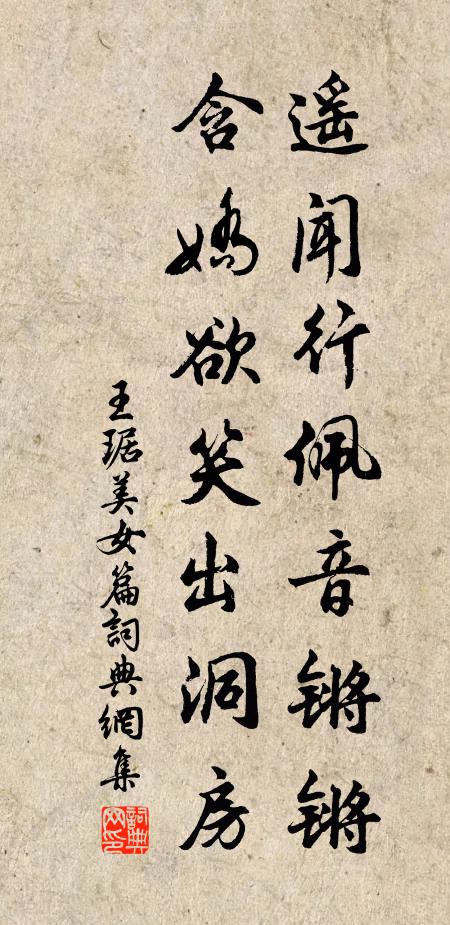 遥闻行佩音锵锵
含嬌欲笑出洞房
王琚美女篇詞典網集
詞典
网印